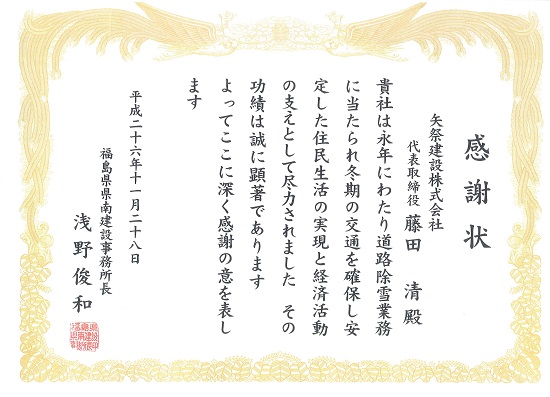 感謝状
矢祭建設株式会社
代表取締役 藤田 清 殿
貴社は永年にわたり道路除雪業務
に当たられ冬期の交通を確保し安
定した住民生活の実現と経済活動
の支えとして尽力されました その
功績は誠に顕著であります
よってここに深く感謝の意を表し
ます
平成二十六年十一月二十八日
福島県県南建設事務所長
浅野俊和